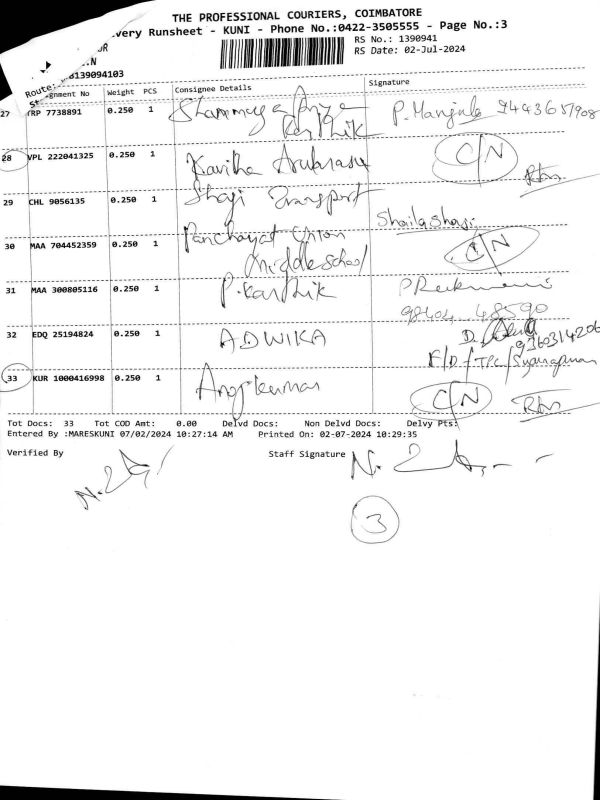 THE PROFESSIONAL COURIERS, COIMBATORE
very Runsheet - KUNI - Phone No.:0422-3505555 - Page No.:3
OR
RS No.: 1390941
.N
RS Date: 02-Jul-2024
Route:
139094103
gnment No Weight PCS Consignee Details Signature
27 TRP 7738891 0.250 1 Karthik P. Manjula 9443657908
28 VPL 222041325 0.250 1 Kavitha Arularasu C/N Rtn
29 CHL 9056135 0.250 1 Shaji Transport Shaila shaji
30 MAA 704452359 0.250 1 Panchayat Union Middle school C/N
31 MAA 300805116 0.250 1 P. Karthik 98404 48590
32 EDQ 25194824 0.250 1 ADWIKA D. 9360314206
F/D
33 KUR 1000416998 0.250 1 C/N Rtn
Tot Docs: 33 Tot COD Amt: 0.00 Delvd Docs: Non Delvd Docs: Delvy Pts:
Entered By :MARESKUNI 07/02/2024 10:27:14 AM Printed On: 02-07-2024 10:29:35
Verified By Staff Signature
3